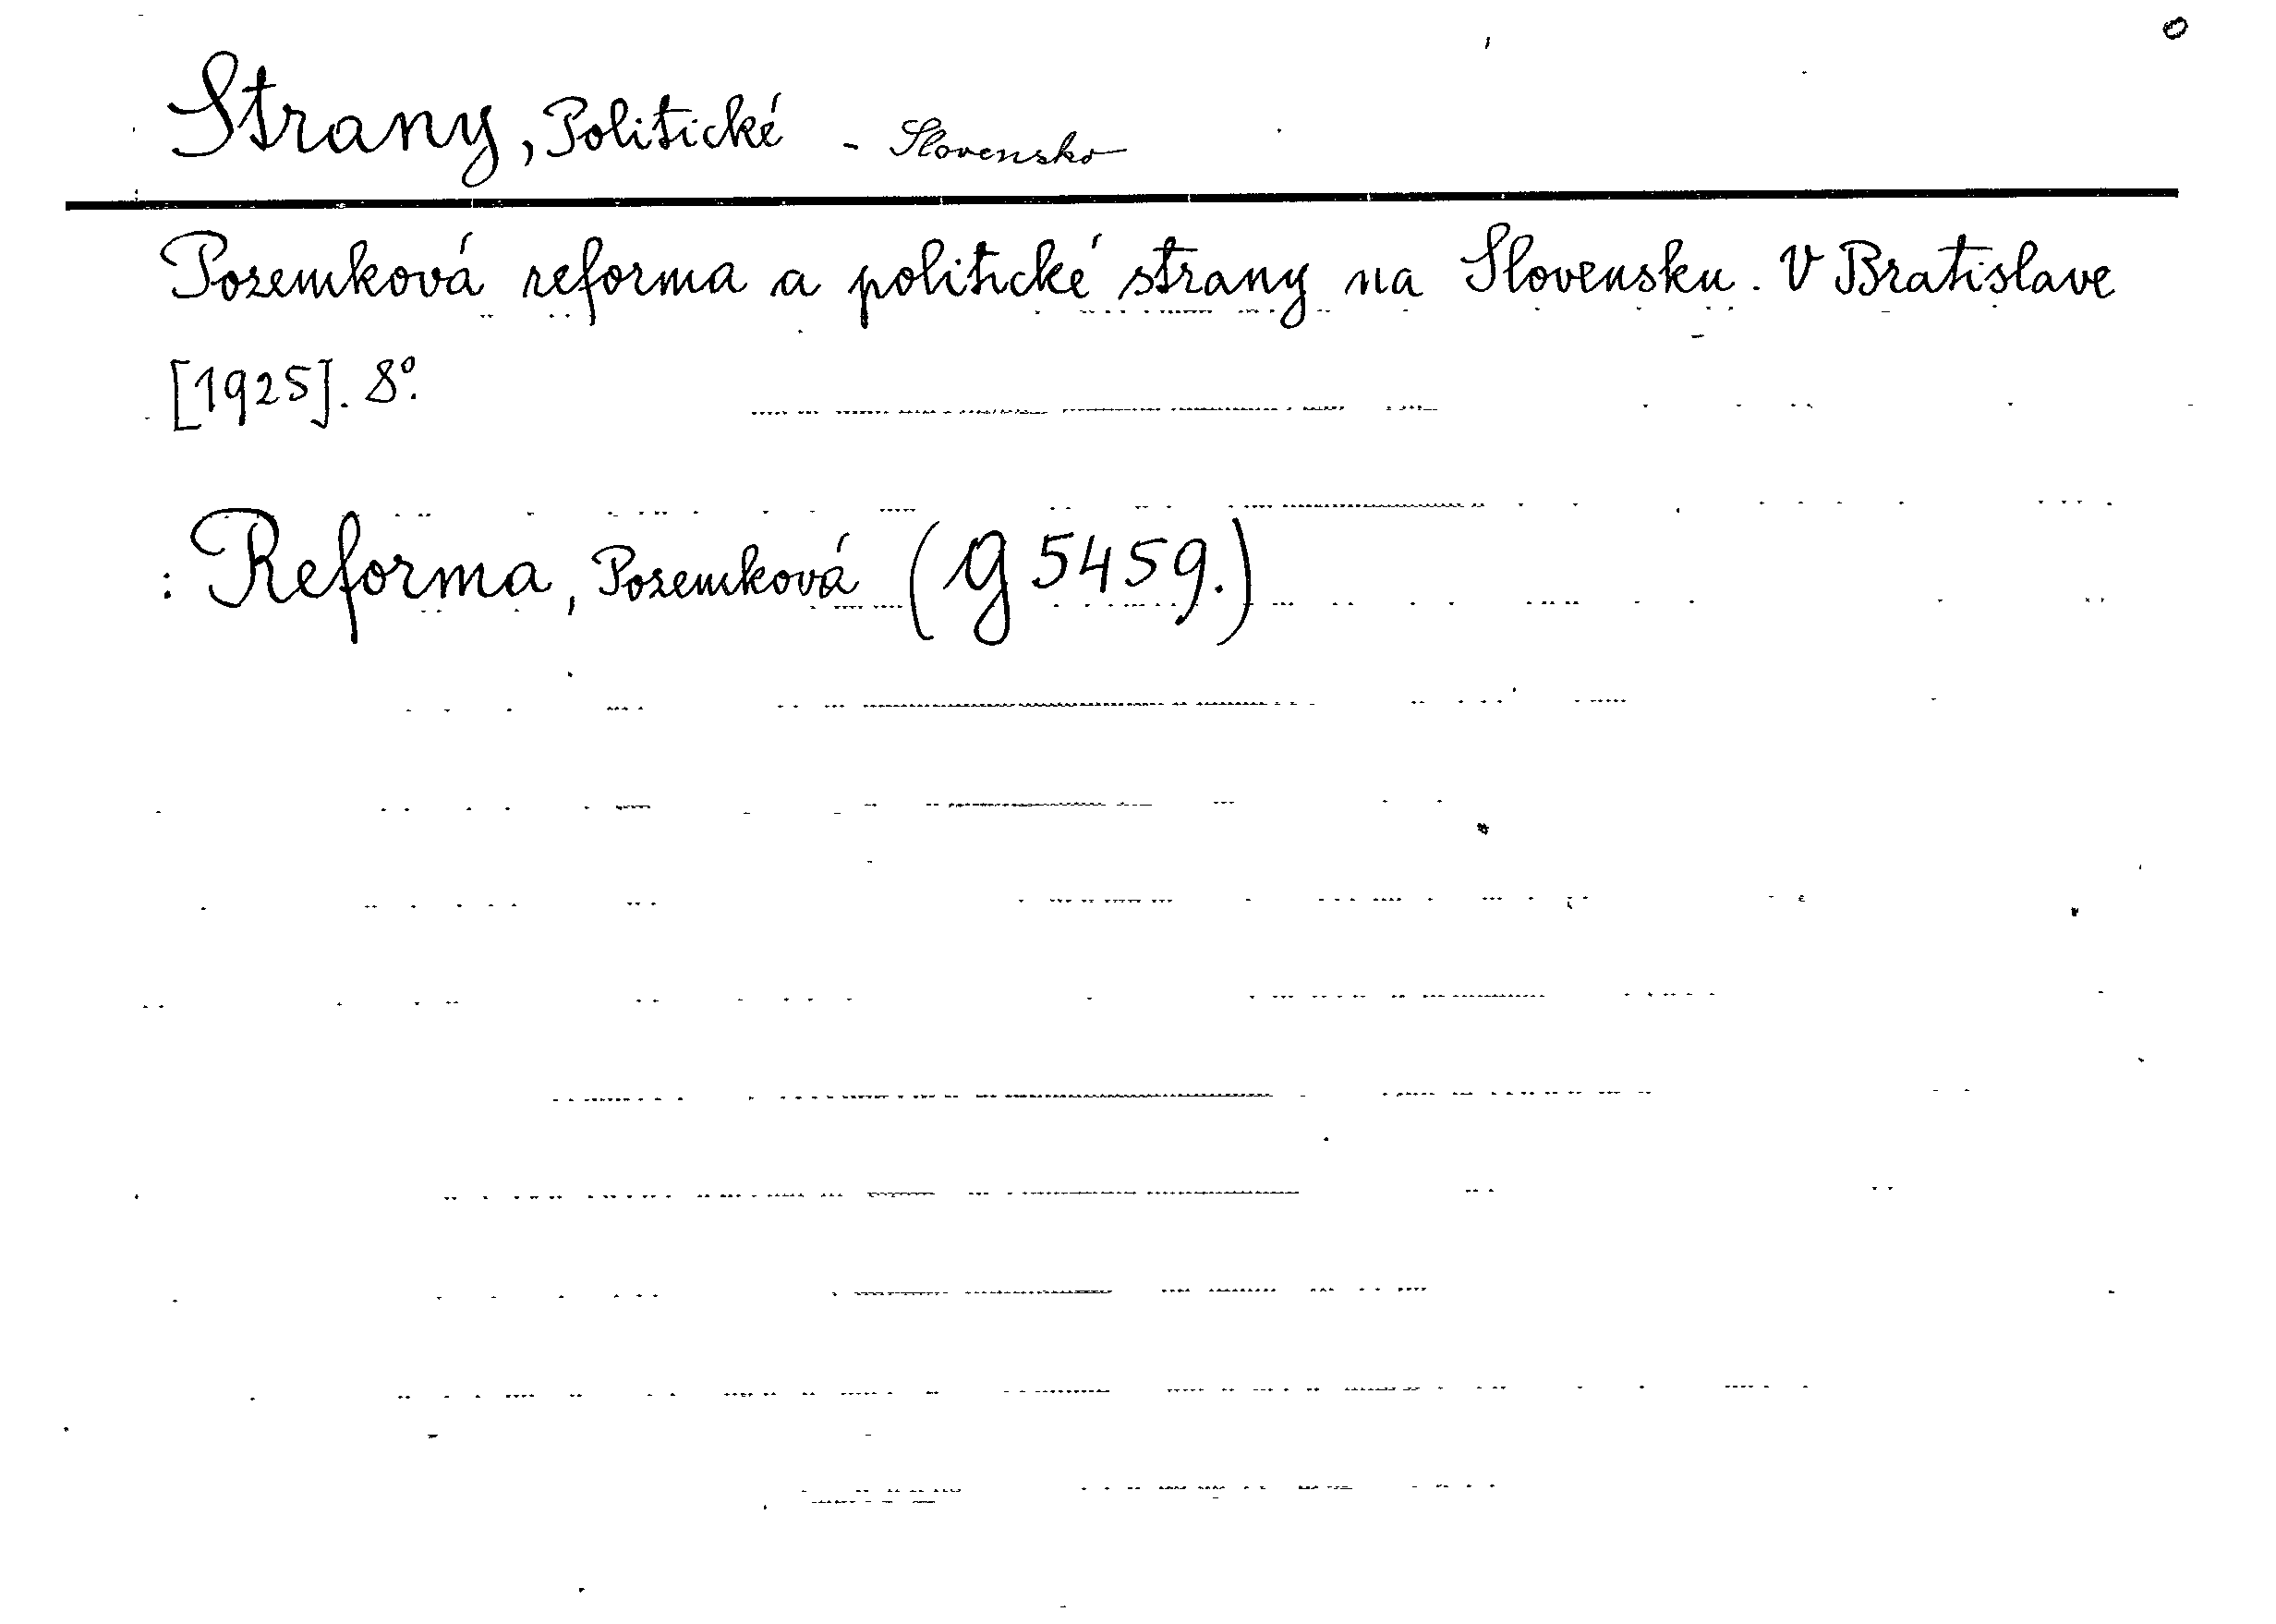 Strany, Politické - Slovensko
Pozemková reforma a politické strany na Slovensku. V Bratislave
[1925]. 8°.
: Reforma, Pozemková (g 5459.)